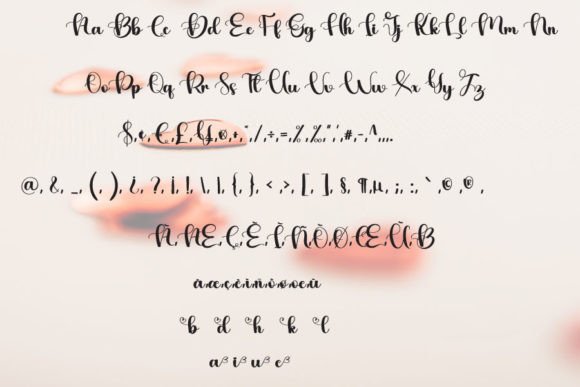 Aa Bb Cc Dd Ee Ff Gg Hh Ii Jj Kk Ll Mm Nn
Oo Pp Qq Rr Ss Tt Uu Vv Ww Xx Yy Zz
$,¢,€,£,¥,¤,+,-,/,÷,=,%,‰,",',#,-,^,,..
@, &, _, (, ), ¿, ?, ¡, !, \, |, {, }, <, >, [, ], §, ¶,µ, ;, :, ` ,© ,® ,
À,Æ,Ç,È,Ì,Ñ,Ò,Ø,Œ,Ù,ß
à,æ,ç,è,ì,ñ,ò,ø,œ,ù
b d h k l
a i u e